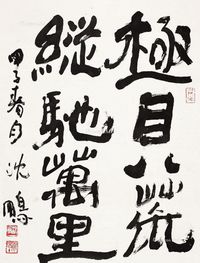 極目八荒
縱馳萬里
甲子春月沈鵬